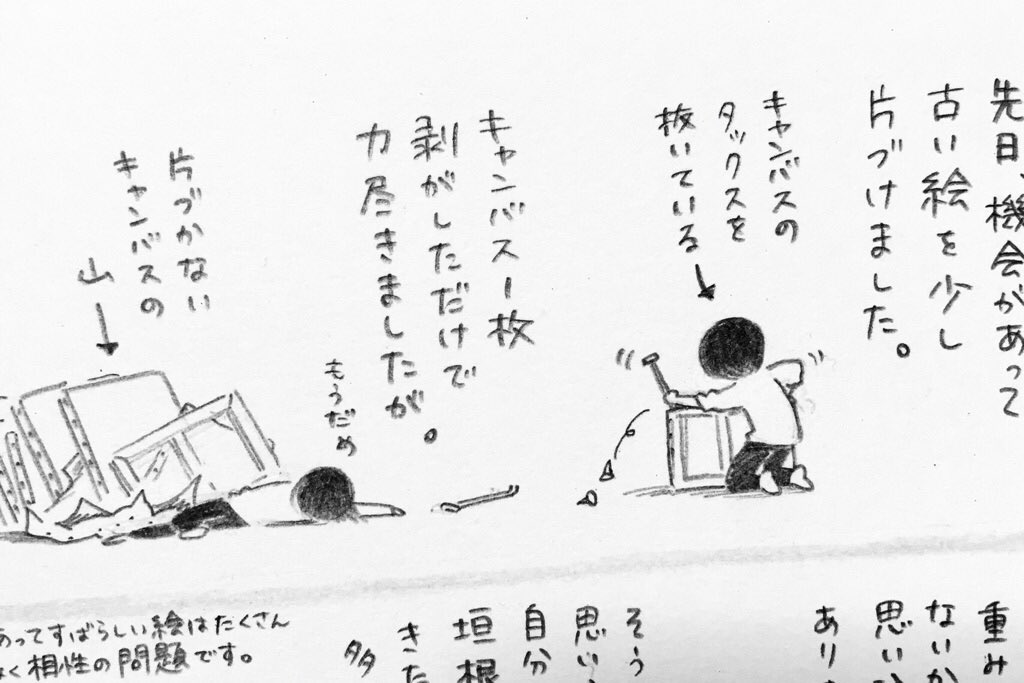 先日、機会があって
古い絵を少し
片づけました。
キャンバスの
タックスを
抜いている
キャンバス一枚
剥がしただけで
力尽きましたが。
もうだめ
片づかない
キャンバスの
山
重み
ないか
思い
あり
そう
思い
自分
垣根
きた
あってすばらしい絵はたくさん
なく相性の問題です。